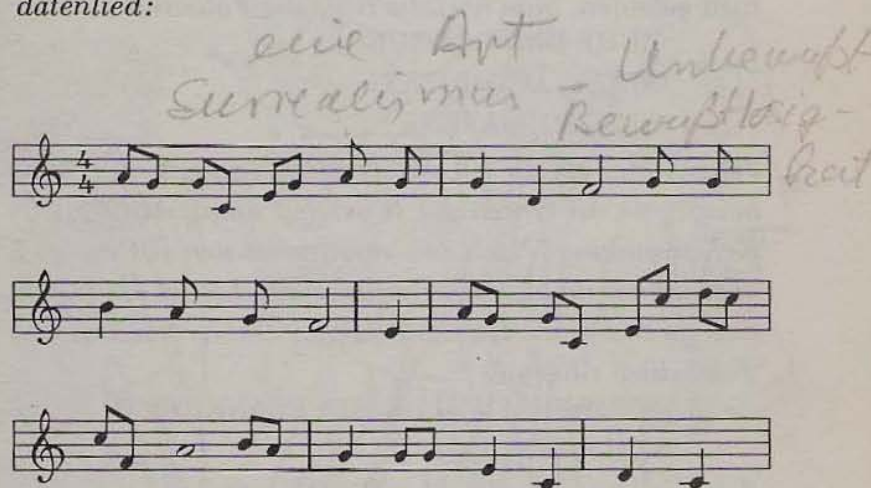 datenlied:
eine Art
Surrealismus – Unbewußt
Bewußtlosig-
keit
4
4